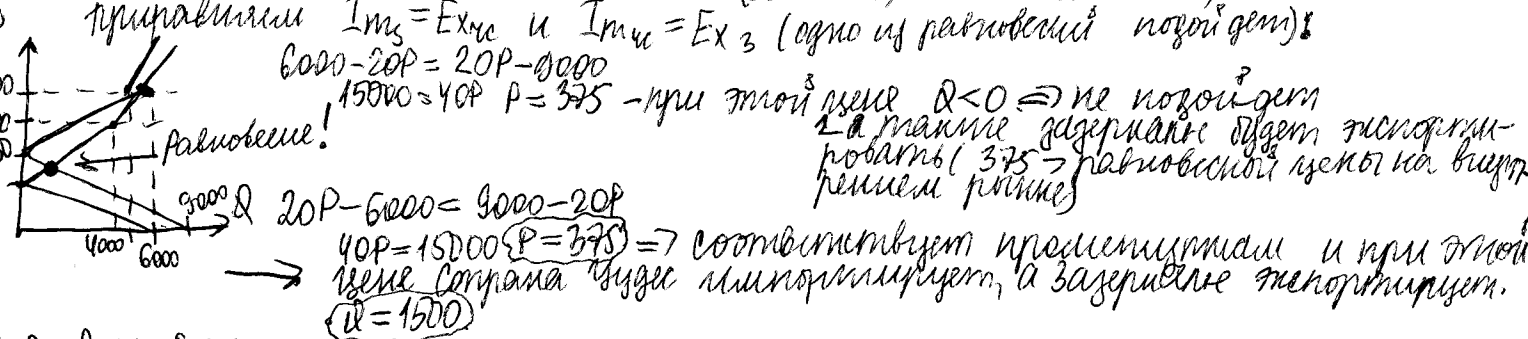 приравняем Im₃ = Exчс и Imчс = Ex₃ (одно из равновесий подойдет):
6000-20P = 20P-9000
15000=40P P=375 - при этой цене Q<0 ⇒ не подойдет
а также зазеркалье будет экспорти-
ровать (375 > равновесной цены на внут-
реннем рынке)
Равновесие!
9000 Q
20P-6000 = 9000-20P
40P=15000 P=375 ⇒ соответствует промежуткам и при этой
цене Страна Чудес импортирует, а Зазеркалье экспортирует.
Q=1500
4000
6000